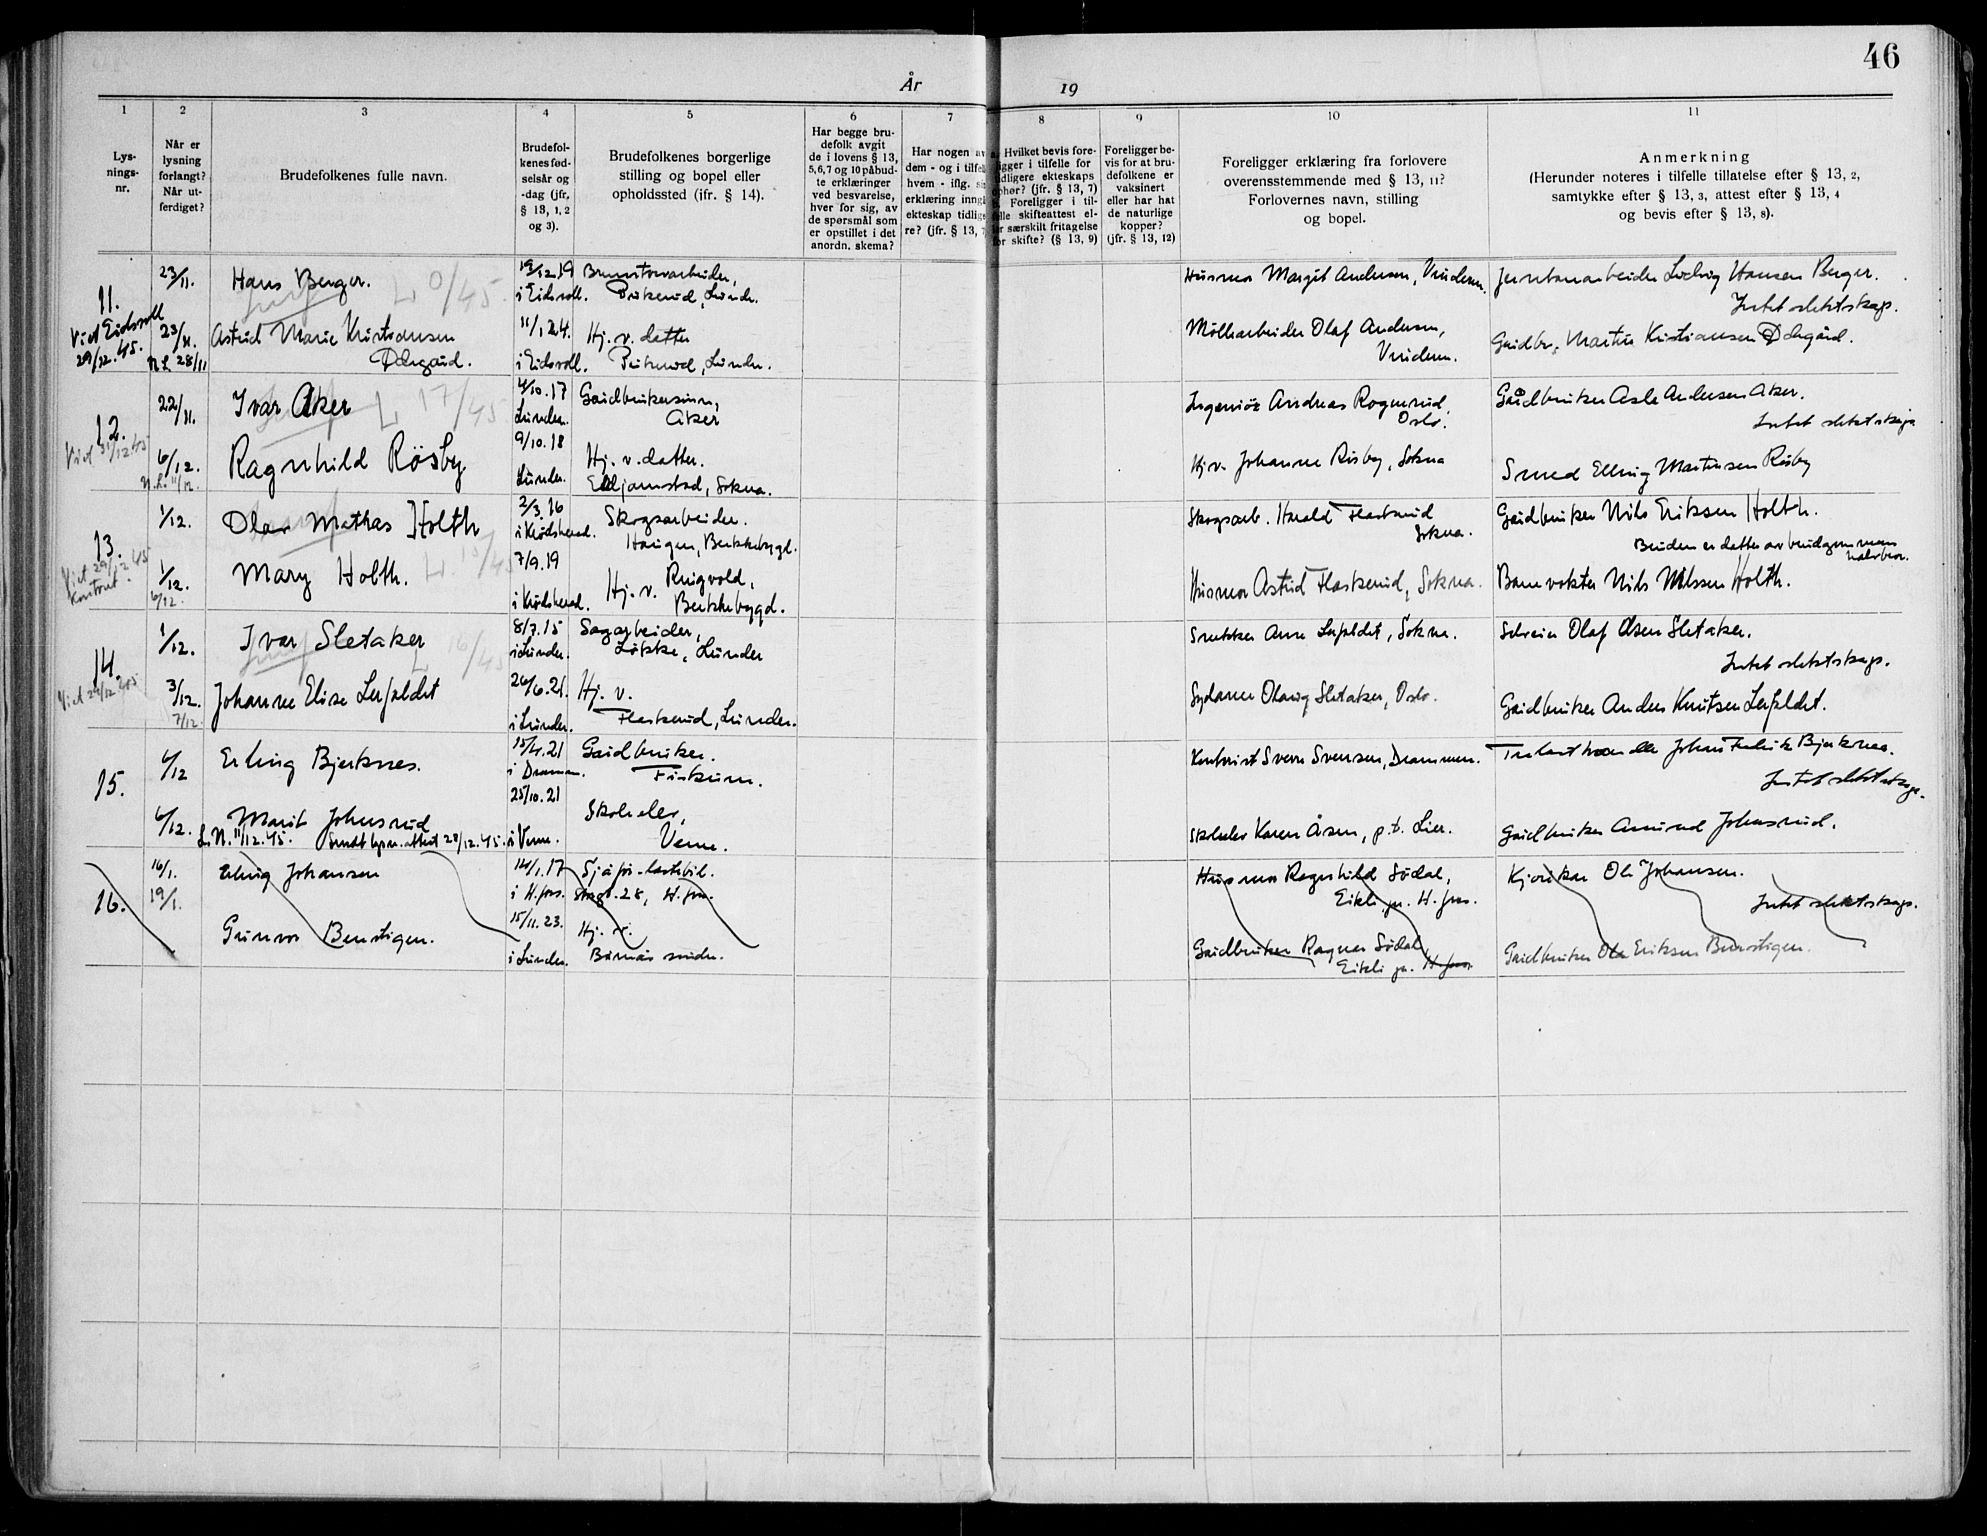 46
År 19
1
2
3
4
5
6
7
8
9
10
11
Lys-
nings-
nr.
Når er
lysning
forlangt?
Når ut-
ferdiget?
Brudefolkenes fulle navn.
Brudefol-
kenes fød-
selsår og
-dag (jfr.
§ 13, 1, 2
og 3).
Brudefolkenes borgerlige
stilling og bopel eller
opholdssted (jfr. § 14).
Har begge bru-
defolk avgit
de i lovens § 13,
5,6,7 og 10 påbud-
te erklæringer
ved besvarelse,
hver for sig, av
de spørsmål som
er opstillet i det
anordn. skema?
Har nogen av
dem - og i tilfelle
hvem - iflg. si
erklæring inngå
ekteskap tidlige-
re? (jfr. § 13, 7
Hvilket bevis fore-
ligger i tilfelle for
tidligere ekteskaps
ophør? (jfr. § 13, 7)
Foreligger i til-
felle skifteattest el-
er særskilt fritagelse
for skifte? (§ 13, 9)
Foreligger be-
vis for at bru-
defolkene er
vaksinert
eller har hat
de naturlige
kopper?
(jfr. § 13, 12)
Foreligger erklæring fra forlovere
overensstemmende med § 13, 11?
Forlovernes navn, stilling
og bopel.
Anmerkning
(Herunder noteres i tilfelle tillatelse efter § 13, 2,
samtykke efter § 13, 3, attest efter § 13, 4
og bevis efter § 13, 8).
11.
Viet Eidsvoll
29/12.45.
23/11.
Hans Berger.
19/12.19
i Eidsvoll.
Lunder.
Husmor Margit Andersen,
Ludvig Hansen Berger.
Intet slektskap.
23/11.
N.L. 28/11
Astrid Marie Kristiansen
Ødegård.
11/1.24.
i Eidsvoll.
Hj. v. datter
Lunder.
Møllearbeider Olaf Andersen,
Gårdbr. Martin Kristiansen Ødegård.
12.
Viet 31/12 45
22/11.
Ivar Aker
L 17/45
4/10.17
Lunder.
Gårdbrukersønn,
Aker
Ingeniør Andreas Rognerud,
Oslo.
Gårdbruker Asle Andersen Aker.
Intet slektskap.
6/12.
N.L. 11/12.
Ragnhild Rösby
9/10.18
Lunder.
Hj. v. datter.
Elljarnstad, Sokna.
Hj.v. Johanne Rösby, Sokna
Smed Elling Martinsen Rösby
13.
Viet 29/12 45
Kontrakt.
1/12.
Olav Mathas Holth
2/3.16
i Krødsherad.
Skogsarbeider.
Haugen,
Skogsarb. Harald Flaskerud
Sokna.
Gårdbruker Nils Eriksen Holth.
Bruden er datter av brudgommens
halvbror.
1/12.
6/12.
Mary Holth.
L 15/45
7/9.19
i Krødsherad.
Hj. v. Ringvold,
Husmor Astrid Flaskerud, Sokna.
Banevokter Nils Nilssen Holth.
14.
Viet 29/12 45
1/12.
Ivar Sletaker
L 16/45
8/7.15
i Lunder.
Sagarbeider,
Løkke, Lunder
Snekker Arne Lerfaldet, Sokna.
Skreier Olaf Olsen Sletaker.
Intet slektskap.
3/12.
7/12.
Johanne Elise Lerfaldet
26/6.21.
i Lunder.
Hj. v.
Flaskerud, Lunder.
Sydame Olaug Sletaker, Oslo.
Gårdbruker Anders Knutsen Lerfaldet.
15.
6/12
Erling Bjerknes.
15/4.21
i Drammen.
Gårdbruker.
Fiskum.
Kontorist Sverre Svensen, Drammen.
Trelasthandler Johan Fredrik Bjerknes.
Intet slektskap.
6/12.
Marit Johnsrud
L.N. 11/12.45. Sendt lysn.attest 28/12.45.
25/10.21
i Veme.
Skoleelev,
Veme.
Skoleelev Karen Åsen, p.t. Lier.
Gårdbruker Amund Johnsrud.
16.
16/1.
19/1.
Erling Johansen
14/1.17
i H.foss.
Sjåfør - lastebil.
Storgt. 28, H.foss.
Husmor Ragnhild Södal,
Eikli pr. H.foss.
Kjørekar Ole Johansen.
Intet slektskap.
Gunvor Benstigen.
15/11.23.
i Lunder.
Hj. v.
Gårdbruker Ragnar Södal,
Eikli pr. H.foss.
Gårdbruker Ole Eriksen Benstigen.